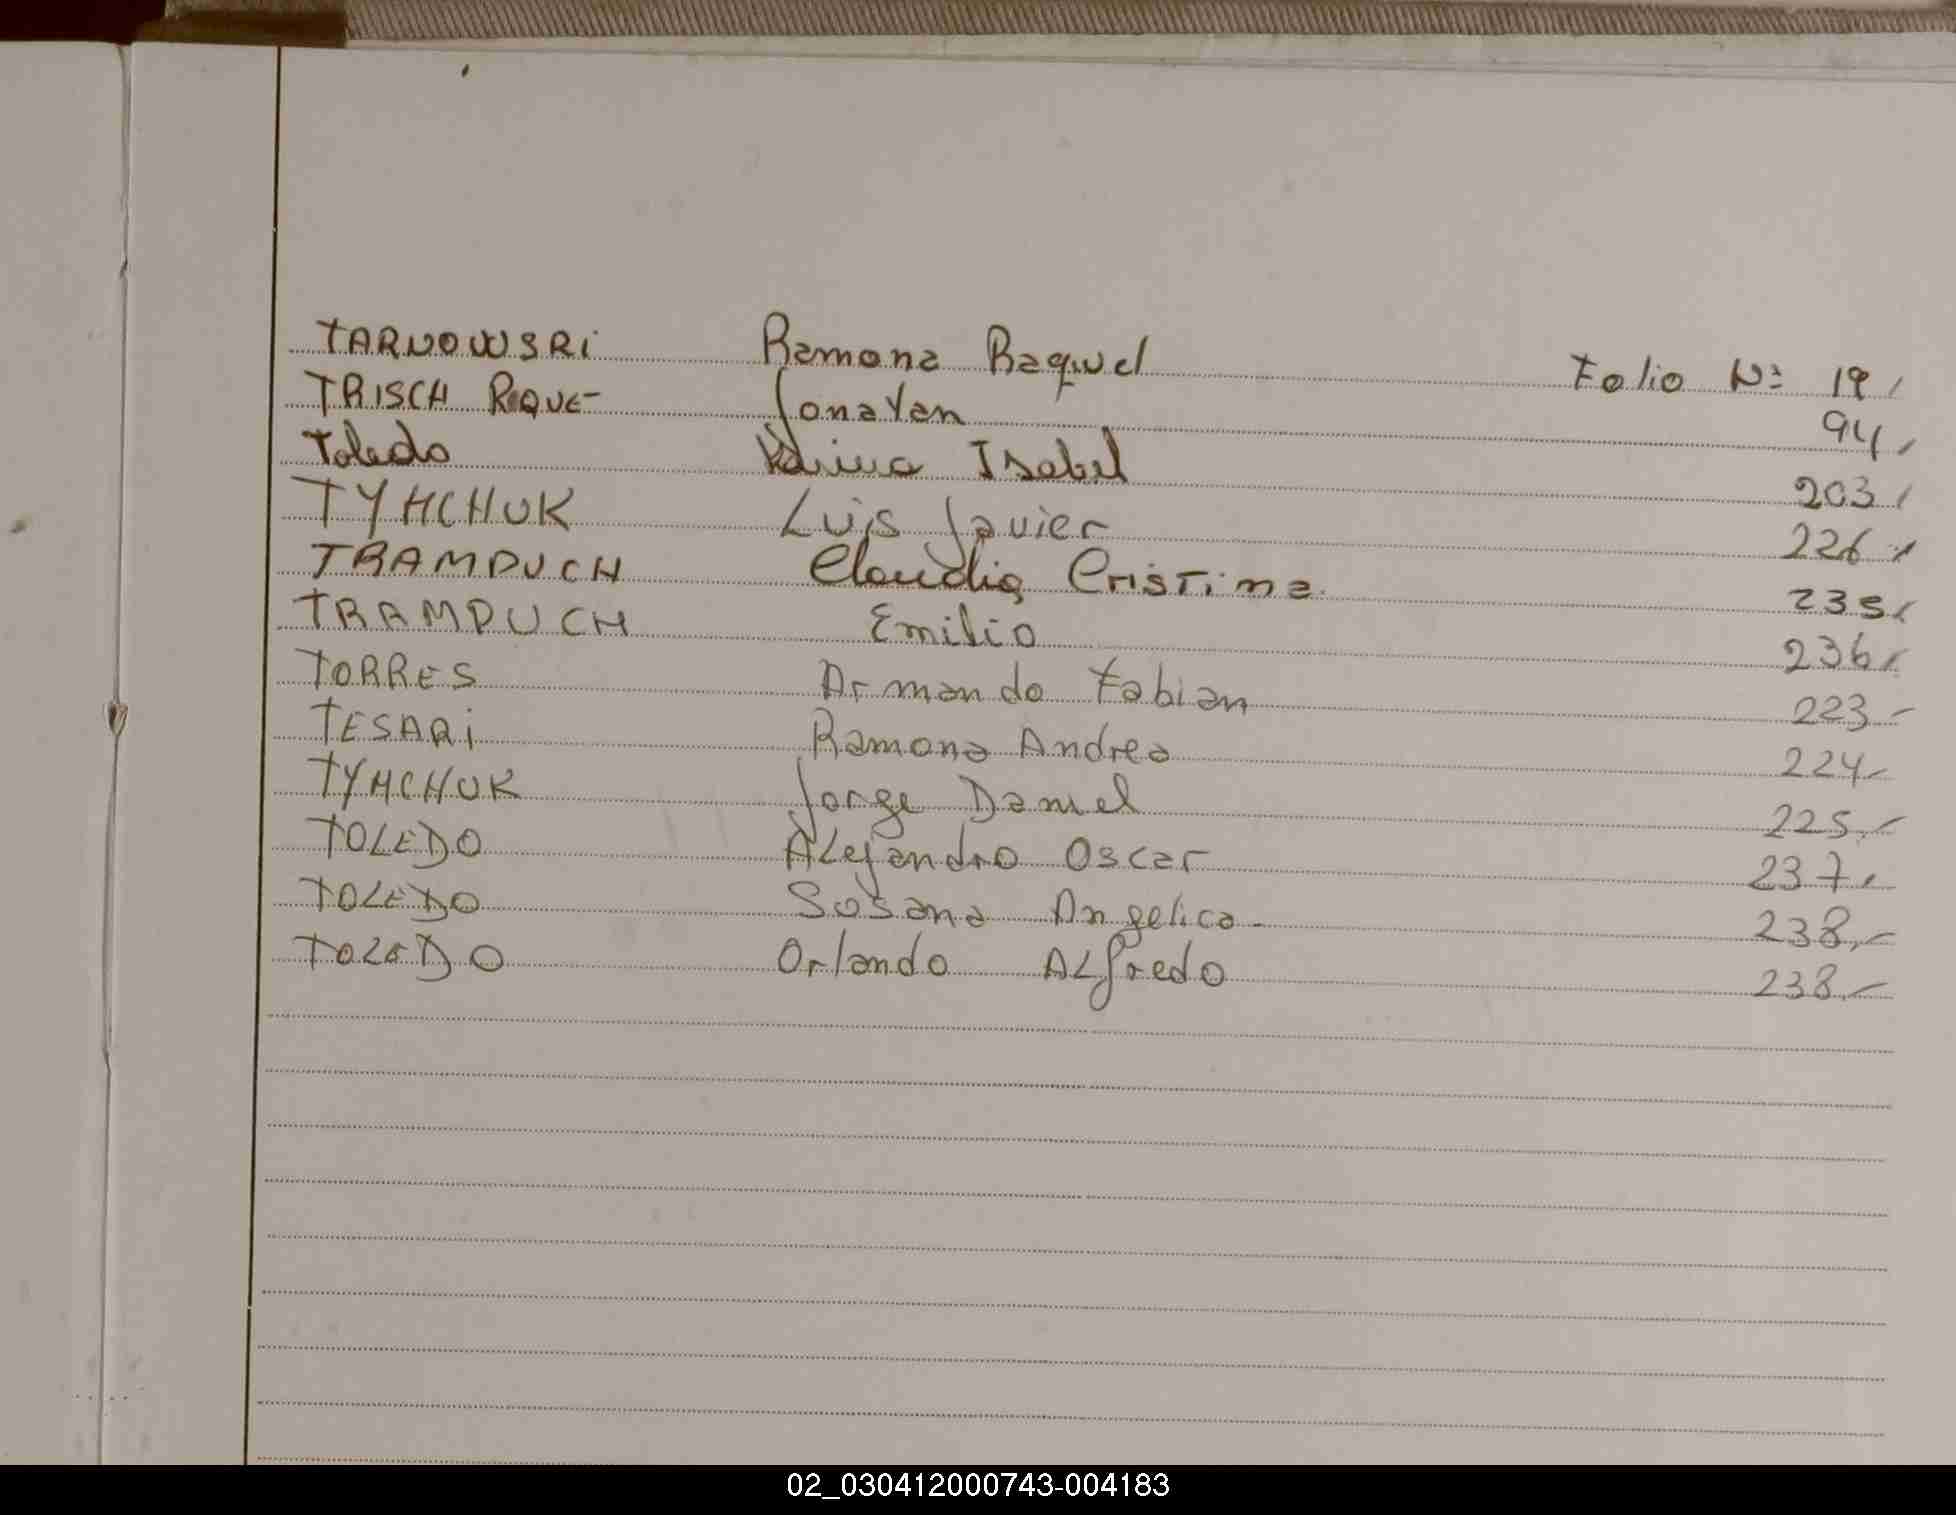 TARNOWSKI Ramona Raquel Folio Nº 19
TRISCH RQUE- Jonatan 94
Toledo Isabel 203
TYMCHUK Luis Javier 226
TRAMPUCH Claudia Cristina 235
TRAMPUCH Emilio 236
TORRES Armando Fabian 223
TESARI Ramona Andrea 224
TYMCHUK Jorge Daniel 225
TOLEDO ALejandro Oscar 237
TOLEDO Susana Angelica 238
TOLEDO Orlando ALfredo 238
02_030412000743-004183